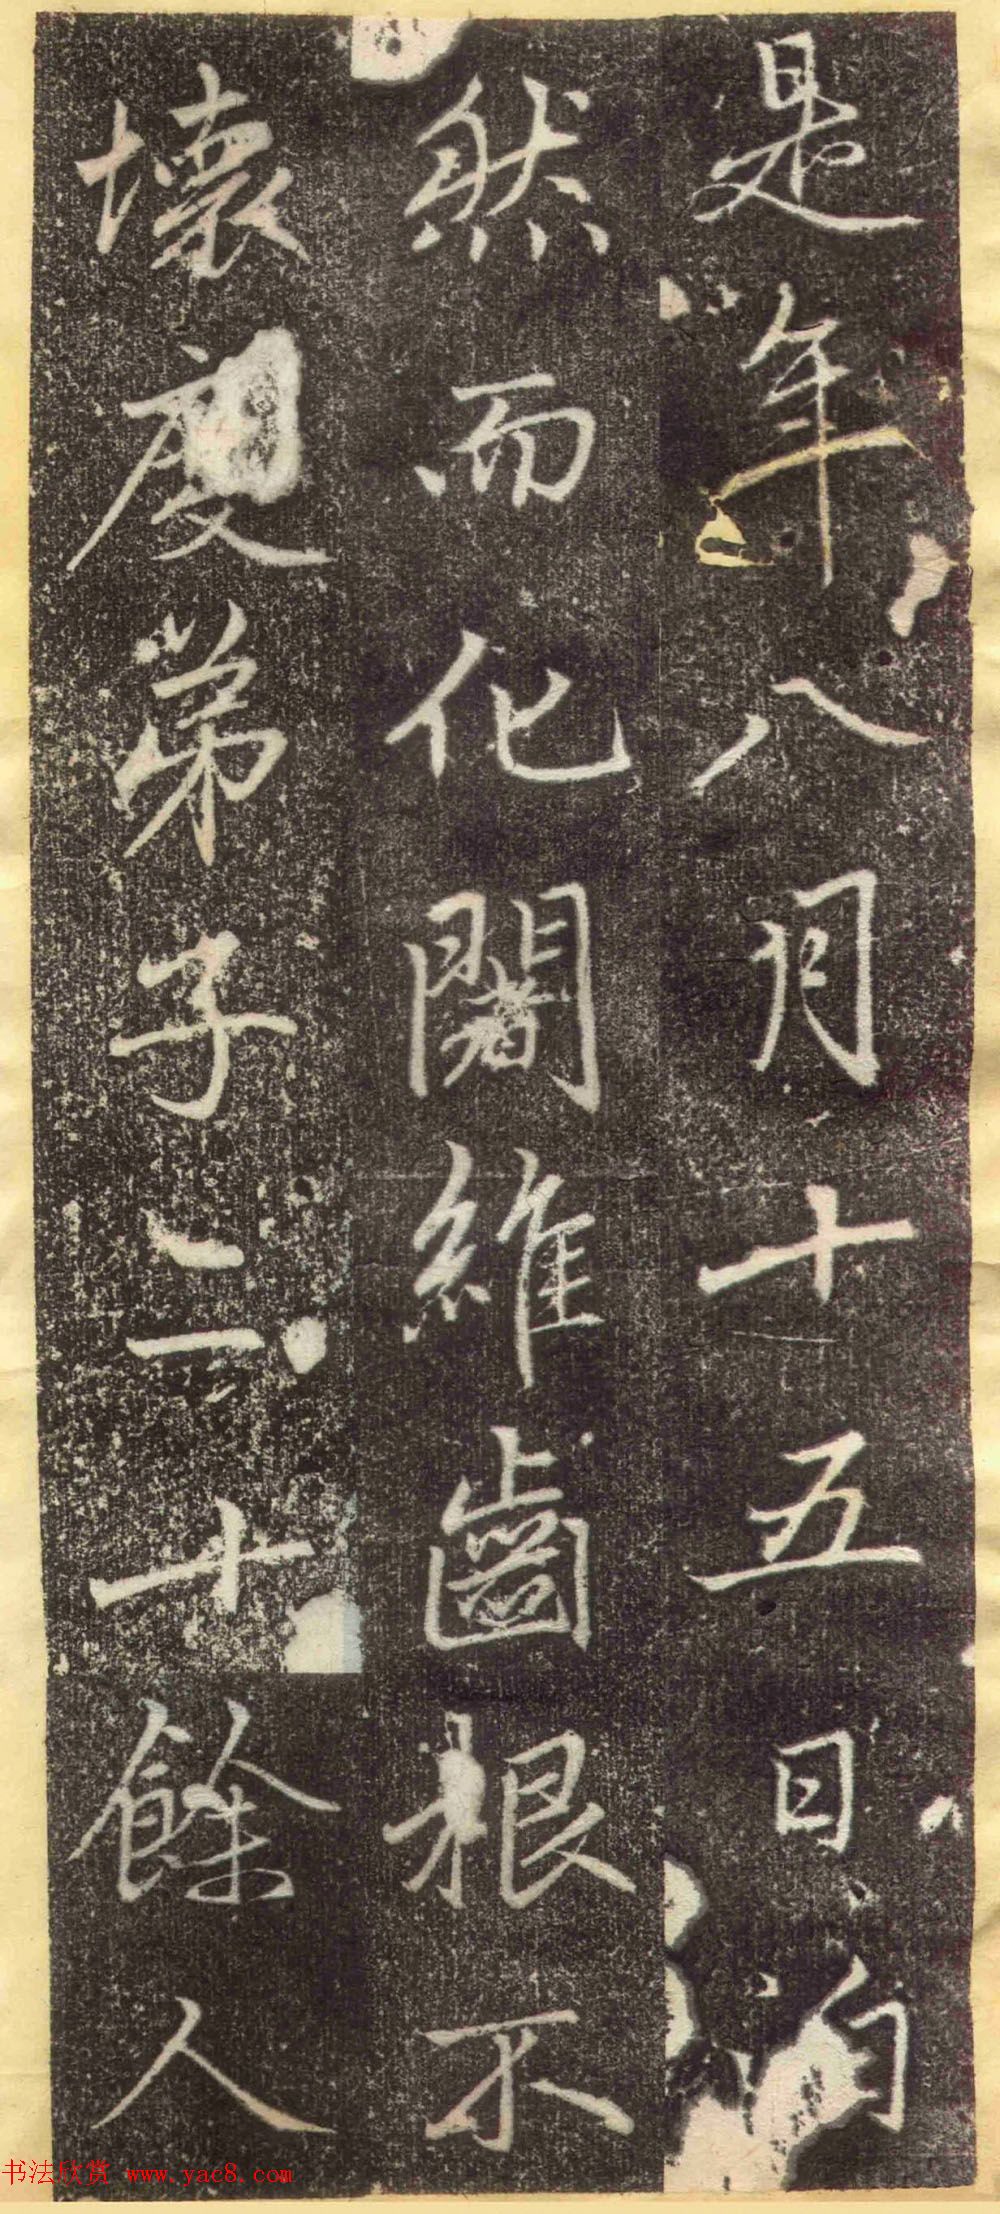 是年八月十五日
然而化闍維齒根不
壞度弟子二十餘人
书法欣赏 www.yac8.com